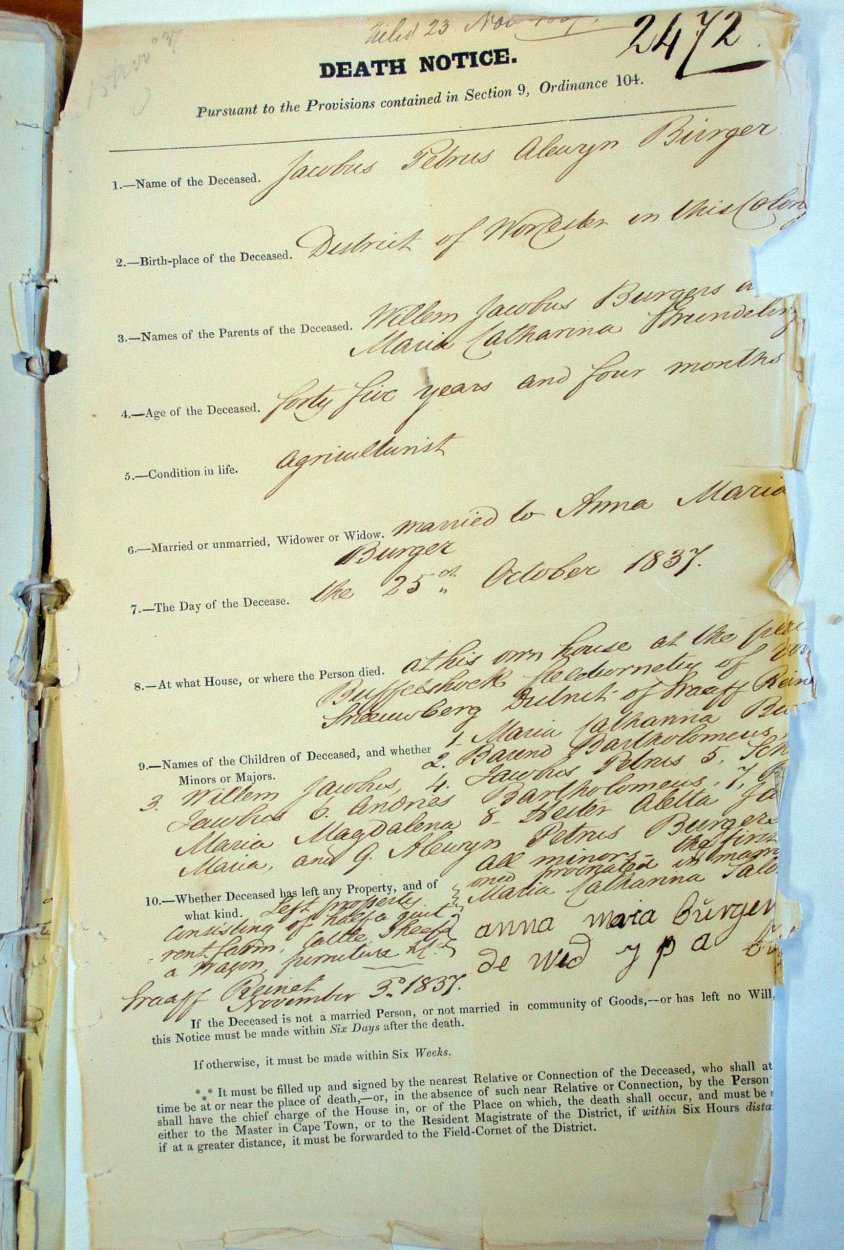 filed 23 Nov
2472
DEATH NOTICE.
Pursuant to the Provisions contained in Section 9, Ordinance 104.
1.—Name of the Deceased. Jacobus Petrus Alewyn Bürger
2.—Birth-place of the Deceased. District of Worcester in this Colony
3.—Names of the Parents of the Deceased. Willem Jacobus Burgers
Maria Catharina
4.—Age of the Deceased. forty five years and four months
5.—Condition in life. Agriculturist
6.—Married or unmarried, Widower or Widow. married to Anna Maria
Burger
7.—The Day of the Decease. the 25th October 1837.
8.—At what House, or where the Person died. at his own house at the
Buffelshoek of
Sneeuwberg District of Graaff Rein
9.—Names of the Children of Deceased, and whether 1. Maria Catharina Bu
Minors or Majors. 2. Barend Bartholomeus,
3. Willem Jacobus, 4. Jacobus Petrus 5.
Jacobus 6. Andries Bartholomeus, 7,
Maria Magdalena 8 Hester Aletta
Maria, and 9. Alewyn Petrus Burgers
all minors. the first
one procreated in
Maria Catharina
10.—Whether Deceased has left any Property, and of
what kind. Left property
consisting of half a quit
rent farm, cattle, sheep
a wagon, furniture &c.
anna maria bürger
de wed j p a
Graaff Reinet
November 3d. 1837.
If the Deceased is not a married Person, or not married in community of Goods,—or has left no Will,
this Notice must be made within Six Days after the death.
If otherwise, it must be made within Six Weeks.
*** It must be filled up and signed by the nearest Relative or Connection of the Deceased, who shall at
time be at or near the place of death,—or, in the absence of such near Relative or Connection, by the Person
shall have the chief charge of the House in, or of the Place on which, the death shall occur, and must be s
either to the Master in Cape Town, or to the Resident Magistrate of the District, if within Six Hours dista
if at a greater distance, it must be forwarded to the Field-Cornet of the District.